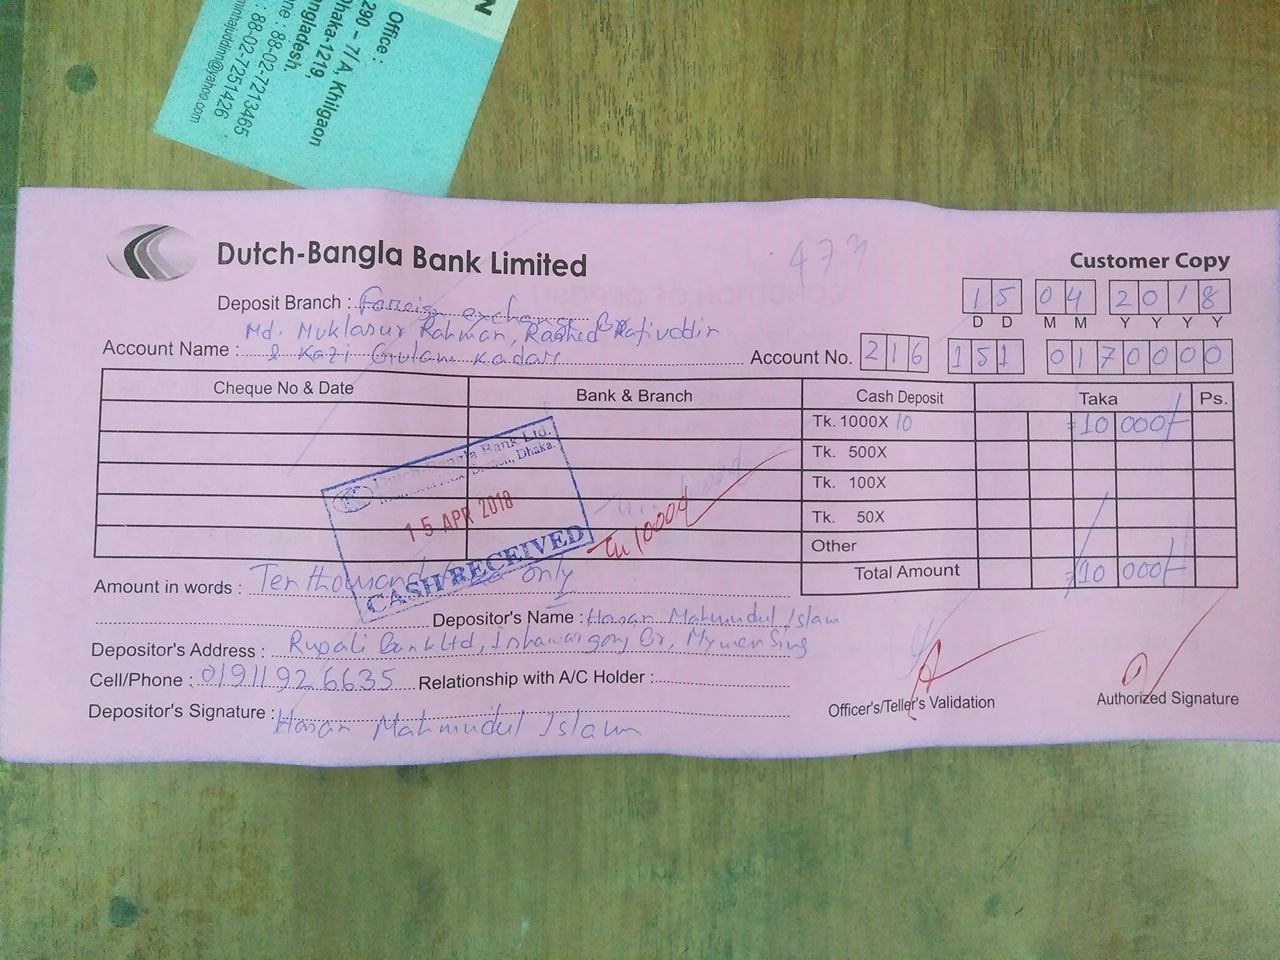 N
Office :
290 – 7/A, Khilgaon
Dhaka-1219,
ngladesh.
ne : 88-02-7213465
: 88-02-7251426
minhajuddinn@yahoo.com
Dutch-Bangla Bank Limited
473
Customer Copy
Deposit Branch : Foreign exchange Br
15 04 2018
D D M M Y Y Y Y
Md. Muklasur Rahman, Rashed Rafiuddin
Account Name : & Kazi Gulam Kadar
Account No. 216 151 0170000
Cheque No & Date Bank & Branch Cash Deposit Taka Ps.
Tk. 1000X 10 =10 000/-
Tk. 500X
Tk. 100X
Tk. 50X
Other
Total Amount =10 000/-
Dutch-Bangla Bank Ltd.
Dhaka.
15 APR 2018
CASH RECEIVED
Tk 10000/
Amount in words : Ten thousand only
Depositor's Name : Hasan Mahmudul Islam
Depositor's Address : Rupali Bank Ltd, Ishwargonj Br, Mymensing
Cell/Phone : 01911926635 Relationship with A/C Holder :
Depositor's Signature : Hasan Mahmudul Islam
Officer's/Teller's Validation
Authorized Signature